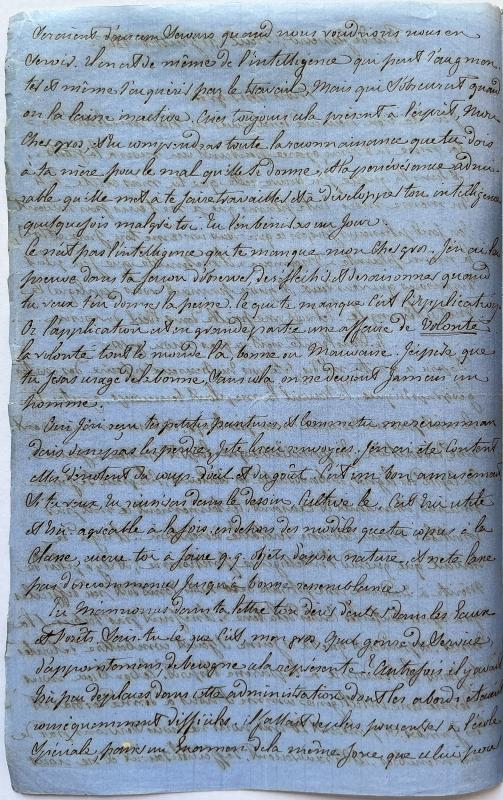 seraient d'aucun secours quand nous voudrions nous en
servir. Il en est de même de l'intelligence qui peut s'augmen
ter et même s'acquérir par le travail, Mais qui s'obscurcit quand
on la laisse inactive. Ayes toujours cela présent à l'esprit, Mon
cher gros, et tu comprendras toute la reconnaissance que tu dois
à ta mère pour le mal qu'elle se donne, et la persévérance admi
rable qu'elle met à te faire travailler et à développer ton intelligence
quelquefois malgré toi. Tu l'en béniras un jour.
Ce n'est pas l'intelligence qui te manque mon cher gros. J'en ai la
preuve dans ta façon d'observer, de réfléchir et de raisonner quand
tu veux t'en donner la peine. Ce qui te manque c'est l'application
Or l'application est en grande partie une affaire de Volonté
la volonté tout le monde l'a, bonne ou Mauvaise. J'espère que
tu feras usage de la bonne, sans cela on ne devient Jamais un
homme.
Oui J'ai reçu tes petites peintures, et comme tu me recomman
dais de ne pas les perdre, je te les ai envoyées. J'en ai été content
elles dénotent du coup d'œil et du goût. C'est un bon amusement
Si tu veux. Tu réussiras dans le dessin. Cultive le, c'est très utile
et très agréable à la fois. en dehors des modèles que tu copies à la
exerce toi à faire q.q. objets d'après nature, et ne te lasse
pas de recommencer jusqu'à bonne ressemblance
Tu m'annonces dans ta lettre ton désir d'entrer dans les Eaux
et Forêts. Sais-tu ce que c'est, mon gros, quel genre de service
d'appointements, de besogne cela représente? Autrefois il y avait
très peu de places dans cette administration dont les abords étaient
conséquemment difficiles. il fallait de plus passer à l'école
spéciale pour un examen de la même force que celui pour